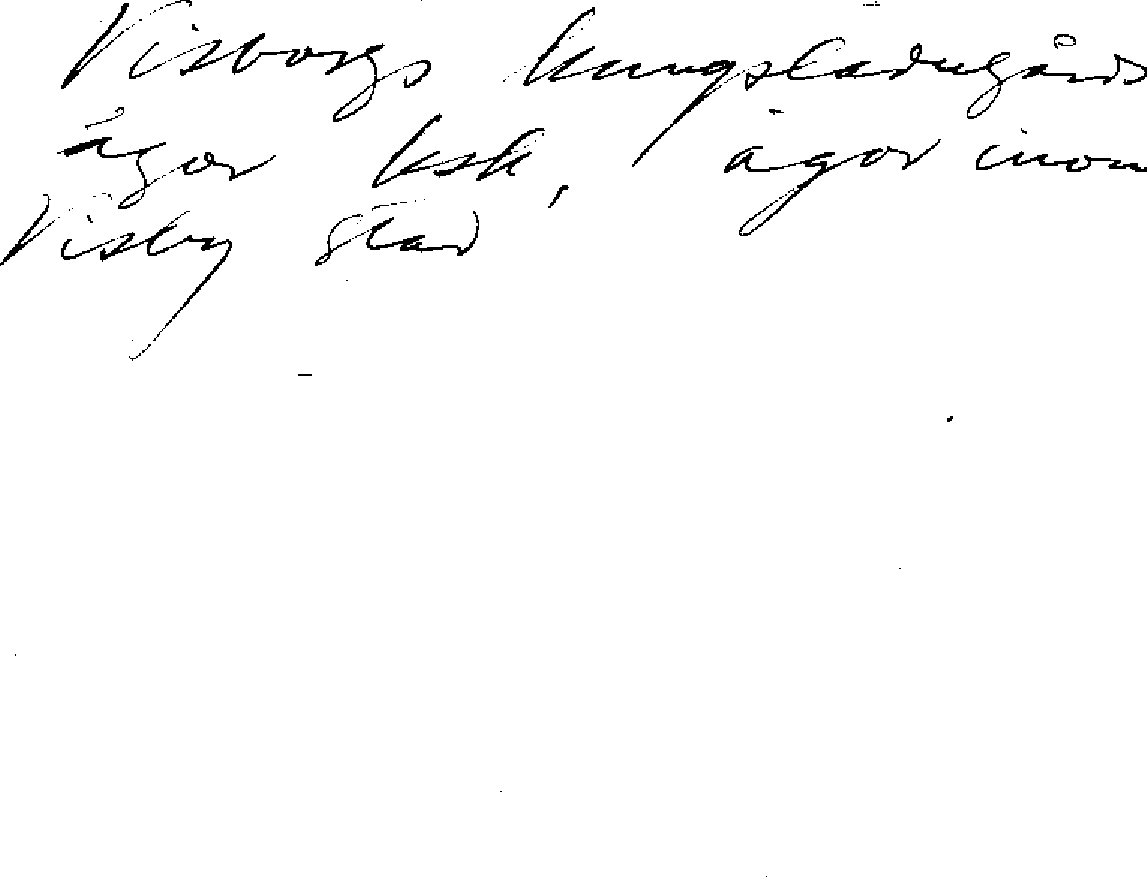 Visborgs kungsladugårds
ägor ksk, ägor inom
Visby stad